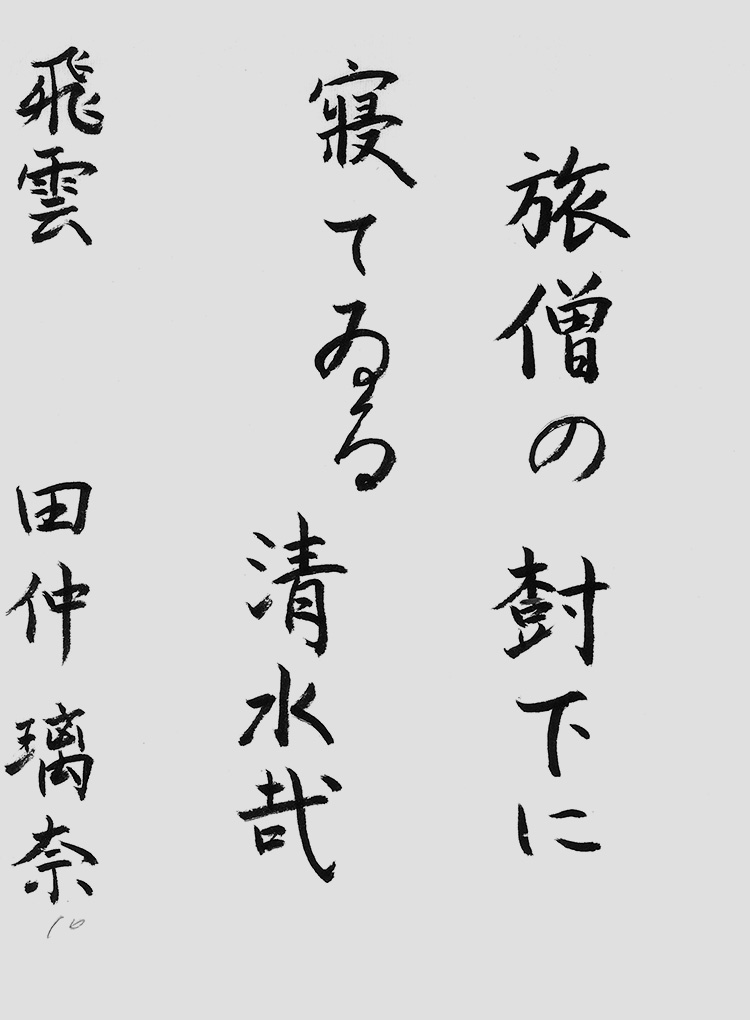 旅僧の樹下に
寝てゐる
清水哉
飛雲 田仲璃奈
10